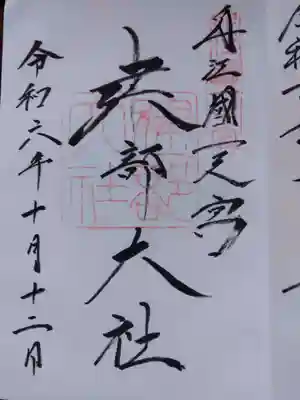 近江國一之宮
建部大社
令和六年十月十二日